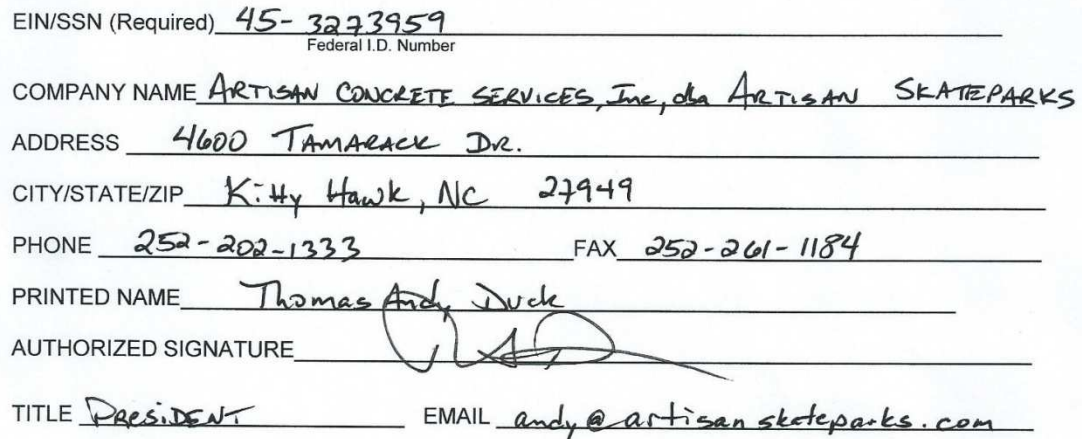 EIN/SSN (Required) 45-3273959
Federal I.D. Number
COMPANY NAME ARTISAN CONCRETE SERVICES, Inc, dba ARTISAN SKATEPARKS
ADDRESS 4600 TAMARACK DR.
CITY/STATE/ZIP Kitty Hawk, NC 27949
PHONE 252-202-1333 FAX 252-261-1184
PRINTED NAME Thomas Andy Duck
AUTHORIZED SIGNATURE
TITLE PRESIDENT EMAIL andy@artisanskateparks.com